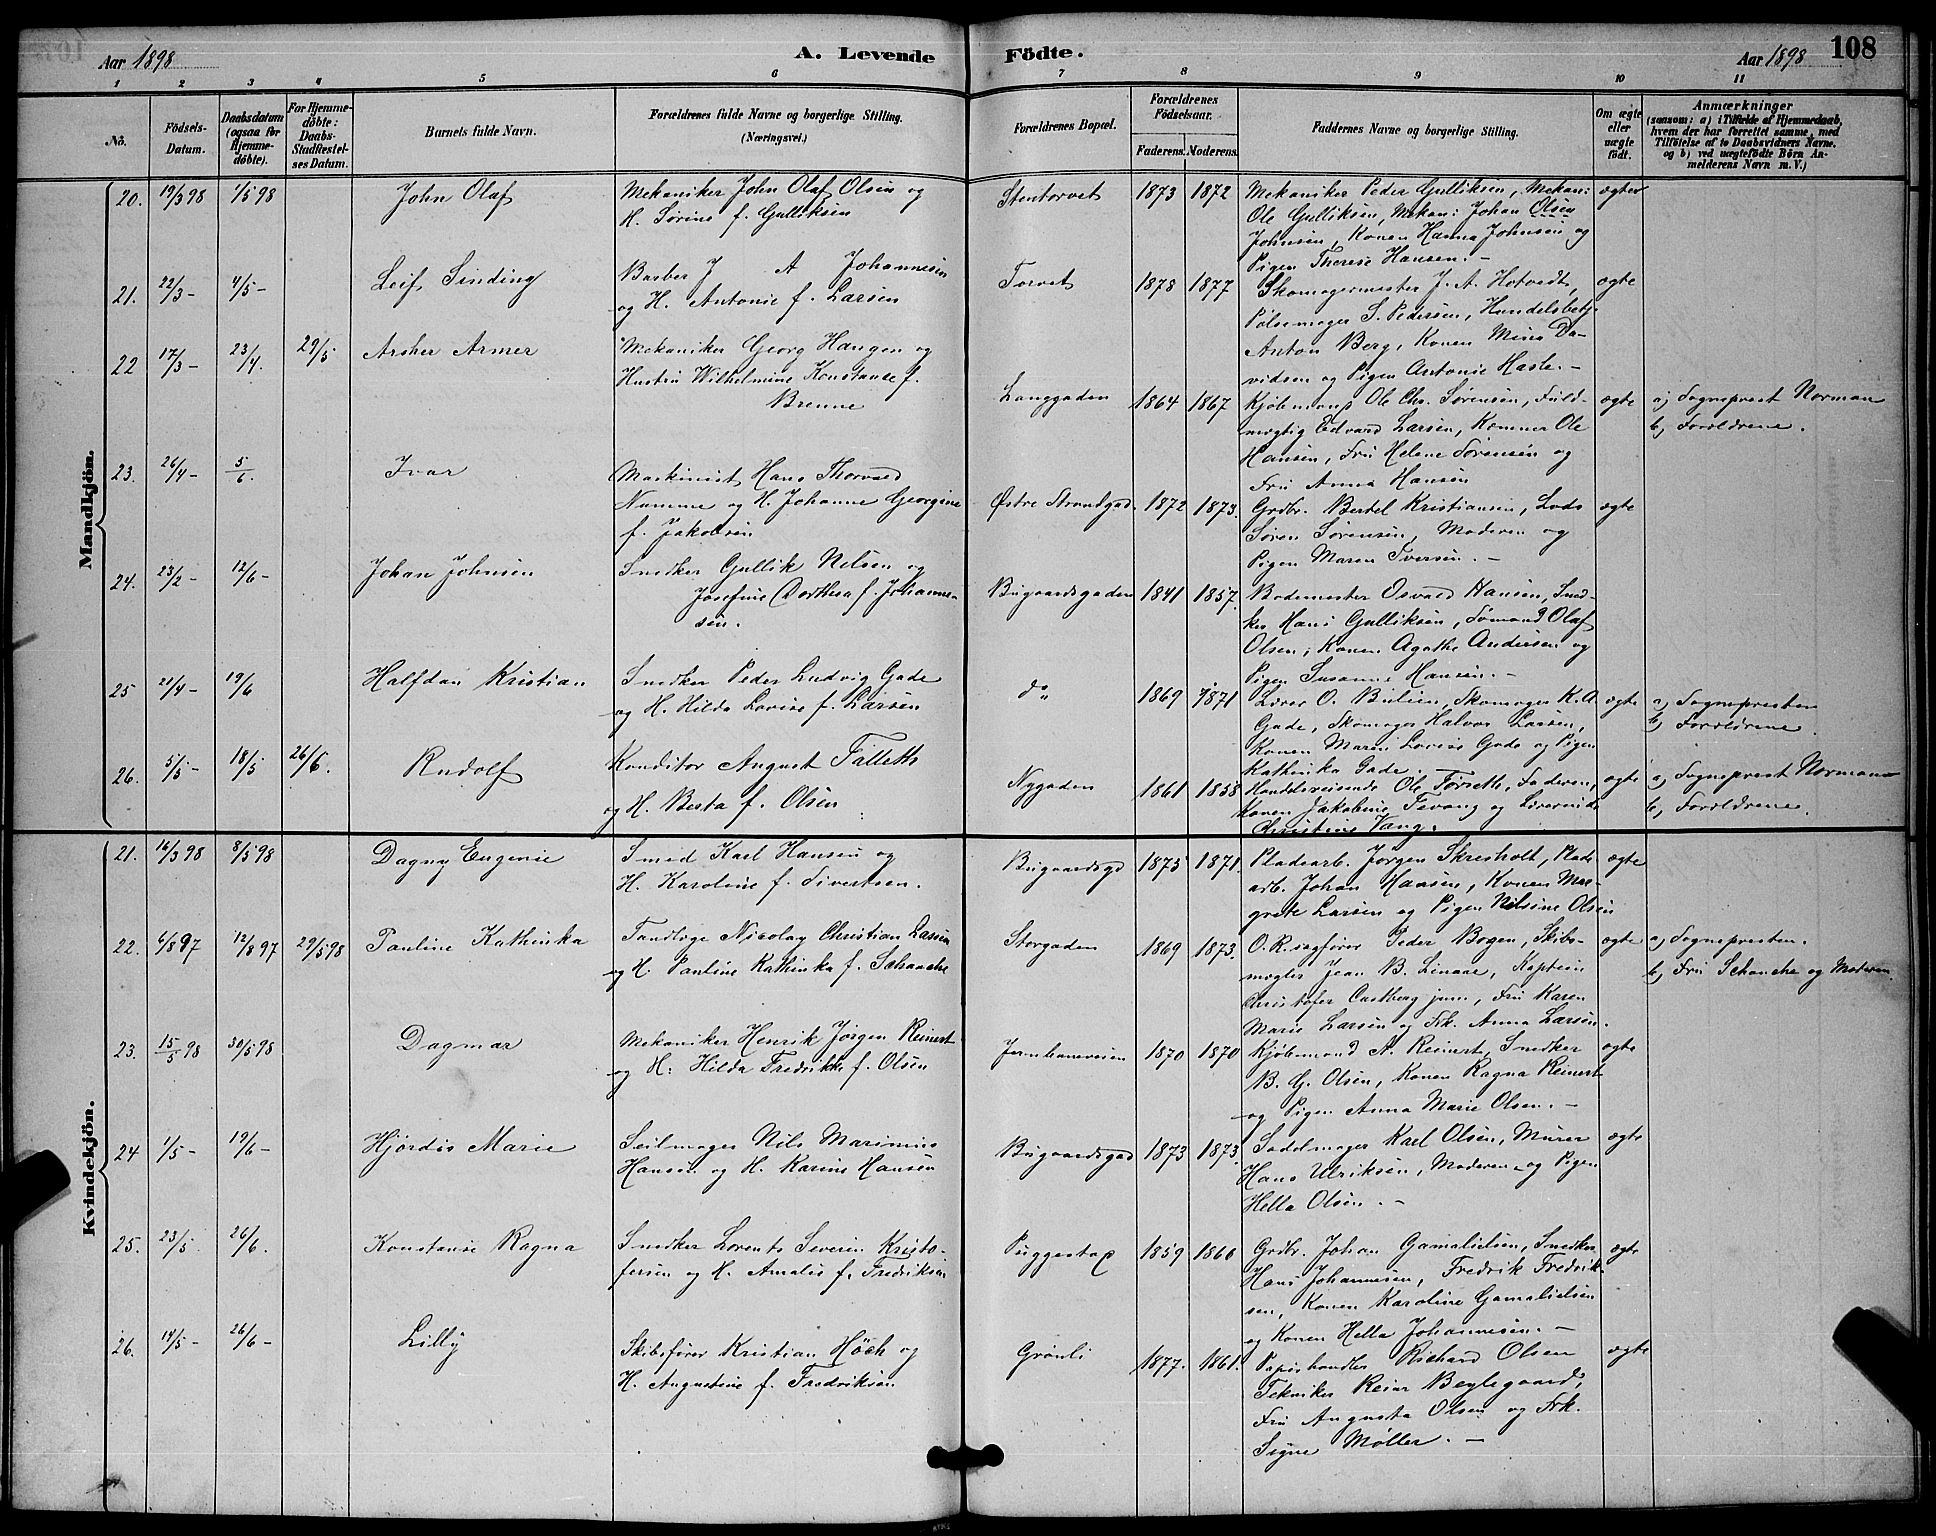 Aar 1898
A. Levende
Födte.
Aar 1898
108
1 2 3 4 5 6 7 8 9 10 11
No.
Födsels-Datum.
Daabsdatum (ogsaa for Hjemme-döbte).
For Hjemme-döbte: Daabs-Stadfæstel-ses Datum.
Barnets fulde Navn.
Forældrenes fulde Navne og borgerlige Stilling. (Næringsvei.)
Forældrenes Bopæl.
Forældrenes Födselsaar.
Faderens. Moderens.
Faddernes Navne og borgerlige Stilling.
Om ægte eller uægte födt.
Anmærkninger
(saasom: a) i Tilfælde af Hjemmedaab,
hvem der har forrettet samme, med
Tilföielse af to Daabsvidners Navne.
og b) ved uægtefödte Börn An-
melderens Navn m. V.)
Mandkjön.
20. 19/3 98 1/5 98 John Olaf
Mekaniker John Olaf Olsen og
H. Sørine f. Gulliksen
Stentorvet 1873 1872
Mekaniker Peder Gulliksen, Mekan:
Ole Gulliksen, Mekan: Johan Olsen
Johnsen, Konen Hanna Johnsen og
Pigen Therese Hansen. –
ægte
21. 22/3 – 4/5 – Leif Sinding
Barber J A Johannesen
og H. Antonie f. Larsen
Torvet 1878 1877
Skomagermester J. A. Hotvedt,
Pølsemager S. Pedersen, Handelsbetj.
Anton Berg, Konen Mina Da-
vidsen og Pigen Antonie Hasle. –
ægte
22 17/3 – 23/4. 29/5 Arsher Armer
Mekaniker Georg Haugen og
Hustru Wilhelmine Konstanse f.
Brenne
Langgaden 1864 1867
Kjøbmand Ole Chr. Sørensen, Fuld-
mægtig Edvard Larsen, Kæmner Ole
Hansen, Fru Helene Sørensen og
Fru Anna Hansen
ægte
a) Sogneprest Norman
b) Forældrene.
23. 26/4 – 5/6. Ivar
Maskinist Hans Thorvald
Numme og H. Johanne Georgine
f. Jakobsen
Østre Strandgad. 1872 1873.
Grdbr. Bertel Kristiansen, Lods
Søren Sørensen, Moderen og
Pigen Maren Iversen. –
ægte
24. 23/2 – 12/6 – Johan Johnsen
Snedker Gullik Nilsen og
Josefine Dorthea f. Johanne-
sen.
Bugaardsgaden 1841 1857.
Bademester Osvald Hansen, Sned-
ker Hans Gulliksen, Sømand Olaf
Olsen, Konen Agathe Andersen og
Pigen Susanne Hansen. –
ægte
25 21/4 – 19/6 Halfdan Kristian
Snedker Peder Ludvig Gade
og H. Hilda Lovise f. Larsen
do 1869 1871
Lærer O. Bulien, Skomager K. A.
Gade, Skomager Halvor Larsen,
Konen Maren Lovise Gade og Pigen
Kathinka Gade. –
ægte
a) Sognepresten
b) Forældrene.
26. 5/5 – 18/5 26/6. Rudolf
Konditor August Talleth
og H. Berta f. Olsen
Nygaden 1861 1858
Handelsreisende Ole Førseth, Faderen,
Konen Jakobine Tevang og Lærerinde
Christine Vang.
ægte
a) Sogneprest Norman
b) Forældrene.
Kvindekjön.
21. 16/3 98 8/5 98 Dagny Eugenie
Smed Karl Hansen og
H. Karoline f. Sivertsen.
Bugaardsgd 1875 1871.
Pladearb. Jørgen Skresholt, Plade
arb. Johan Hansen, Konen Mar-
grete Larsen og Pigen Nilsine Olsen
ægte
22. 6/8 97 12/8 97 29/5 98 Pauline Kathinka
Tandlæge Nicolay Christian Larsen
og H. Pauline Kathinka f. Schanche
Storgaden 1869 1873.
O. R. sagfører Peder Bogen, Skibs-
mægler Jean B. Linaae, Kaptein
Christofer Castberg jun., Fru Karen
Marie Larsen og Frk. Anna Larsen.
ægte
a) Sognepresten.
b) Fru Schanche og Moderen
23. 15/5 98 30/5 98 Dagmar
Mekaniker Henrik Jørgen Reinert
og H. Hilda Fredrikke f. Olsen
Jernbaneveien 1870 1870
Kjøbmand A. Reinert, Snedker
B. G. Olsen, Konen Ragna Reinert
og Pigen Anna Marie Olsen. –
ægte
24 1/5 – 19/6 – Hjørdis Marie
Seilmager Nils Marinius
Hansen og H. Karine Hansen
Bugaardsgad 1873 1873.
Sadelmager Karl Olsen, Murer
Hans Ulriksen, Moderen og Pigen
Hella Olsen. –
ægte
25. 23/5. 26/6. Konstanse Ragna
Snedker Lorents Severin Kristo-
fersen og H. Amalie f. Fredriksen
Puggestad 1859 1860
Grdbr. Johan Gamalielsen, Snedker
Hans Johannesen, Fredrik Fredrik-
sen, Konen Karoline Gamalielsen
og Konen Hella Johannesen. –
ægte
26. 14/5 – 26/6 – Lilly
Skibsfører Kristian Höch og
H. Augustine f. Fredriksen
Grönli 1877. 1861.
Papirhandler Richard Olsen
Tekniker Reiar Beylegaard,
Fru Augusta Olsen og Frk.
Signe Møller. –
ægte